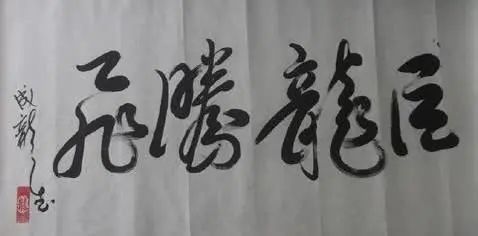 巨龍騰飛
成龍